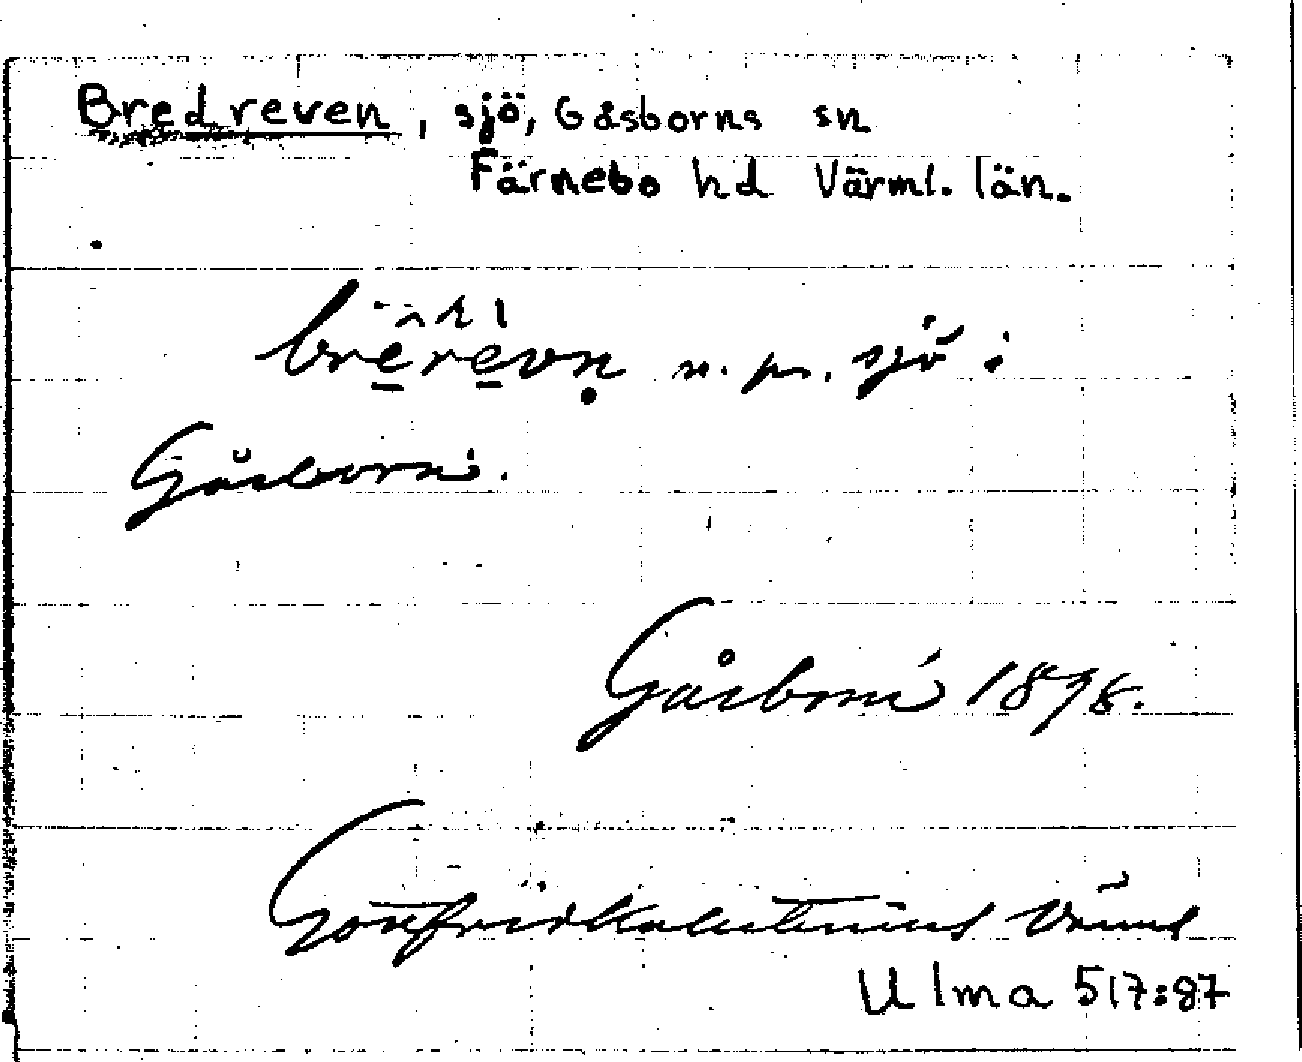 Bredreven, sjö, Gåsborns sn
Färnebo hd Värml. län.
brẹrẹvṇ n. pr. sjö i
Gåsborn.
Gåsborn 1898.
Gottfrid Kallstenius
Ulma 517:87